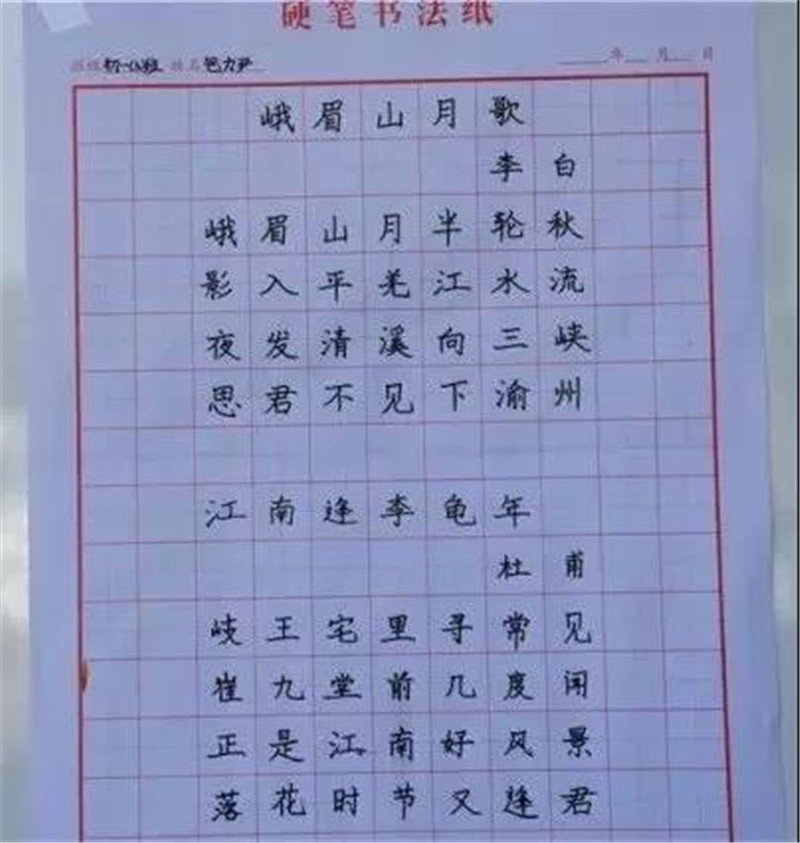 硬笔书法纸
班级 初一(3)班 姓名 包力尹 年 月 日
峨眉山月歌
李白
峨眉山月半轮秋
影入平羌江水流
夜发清溪向三峡
思君不见下渝州
江南逢李龟年
杜甫
岐王宅里寻常见
崔九堂前几度闻
正是江南好风景
落花时节又逢君